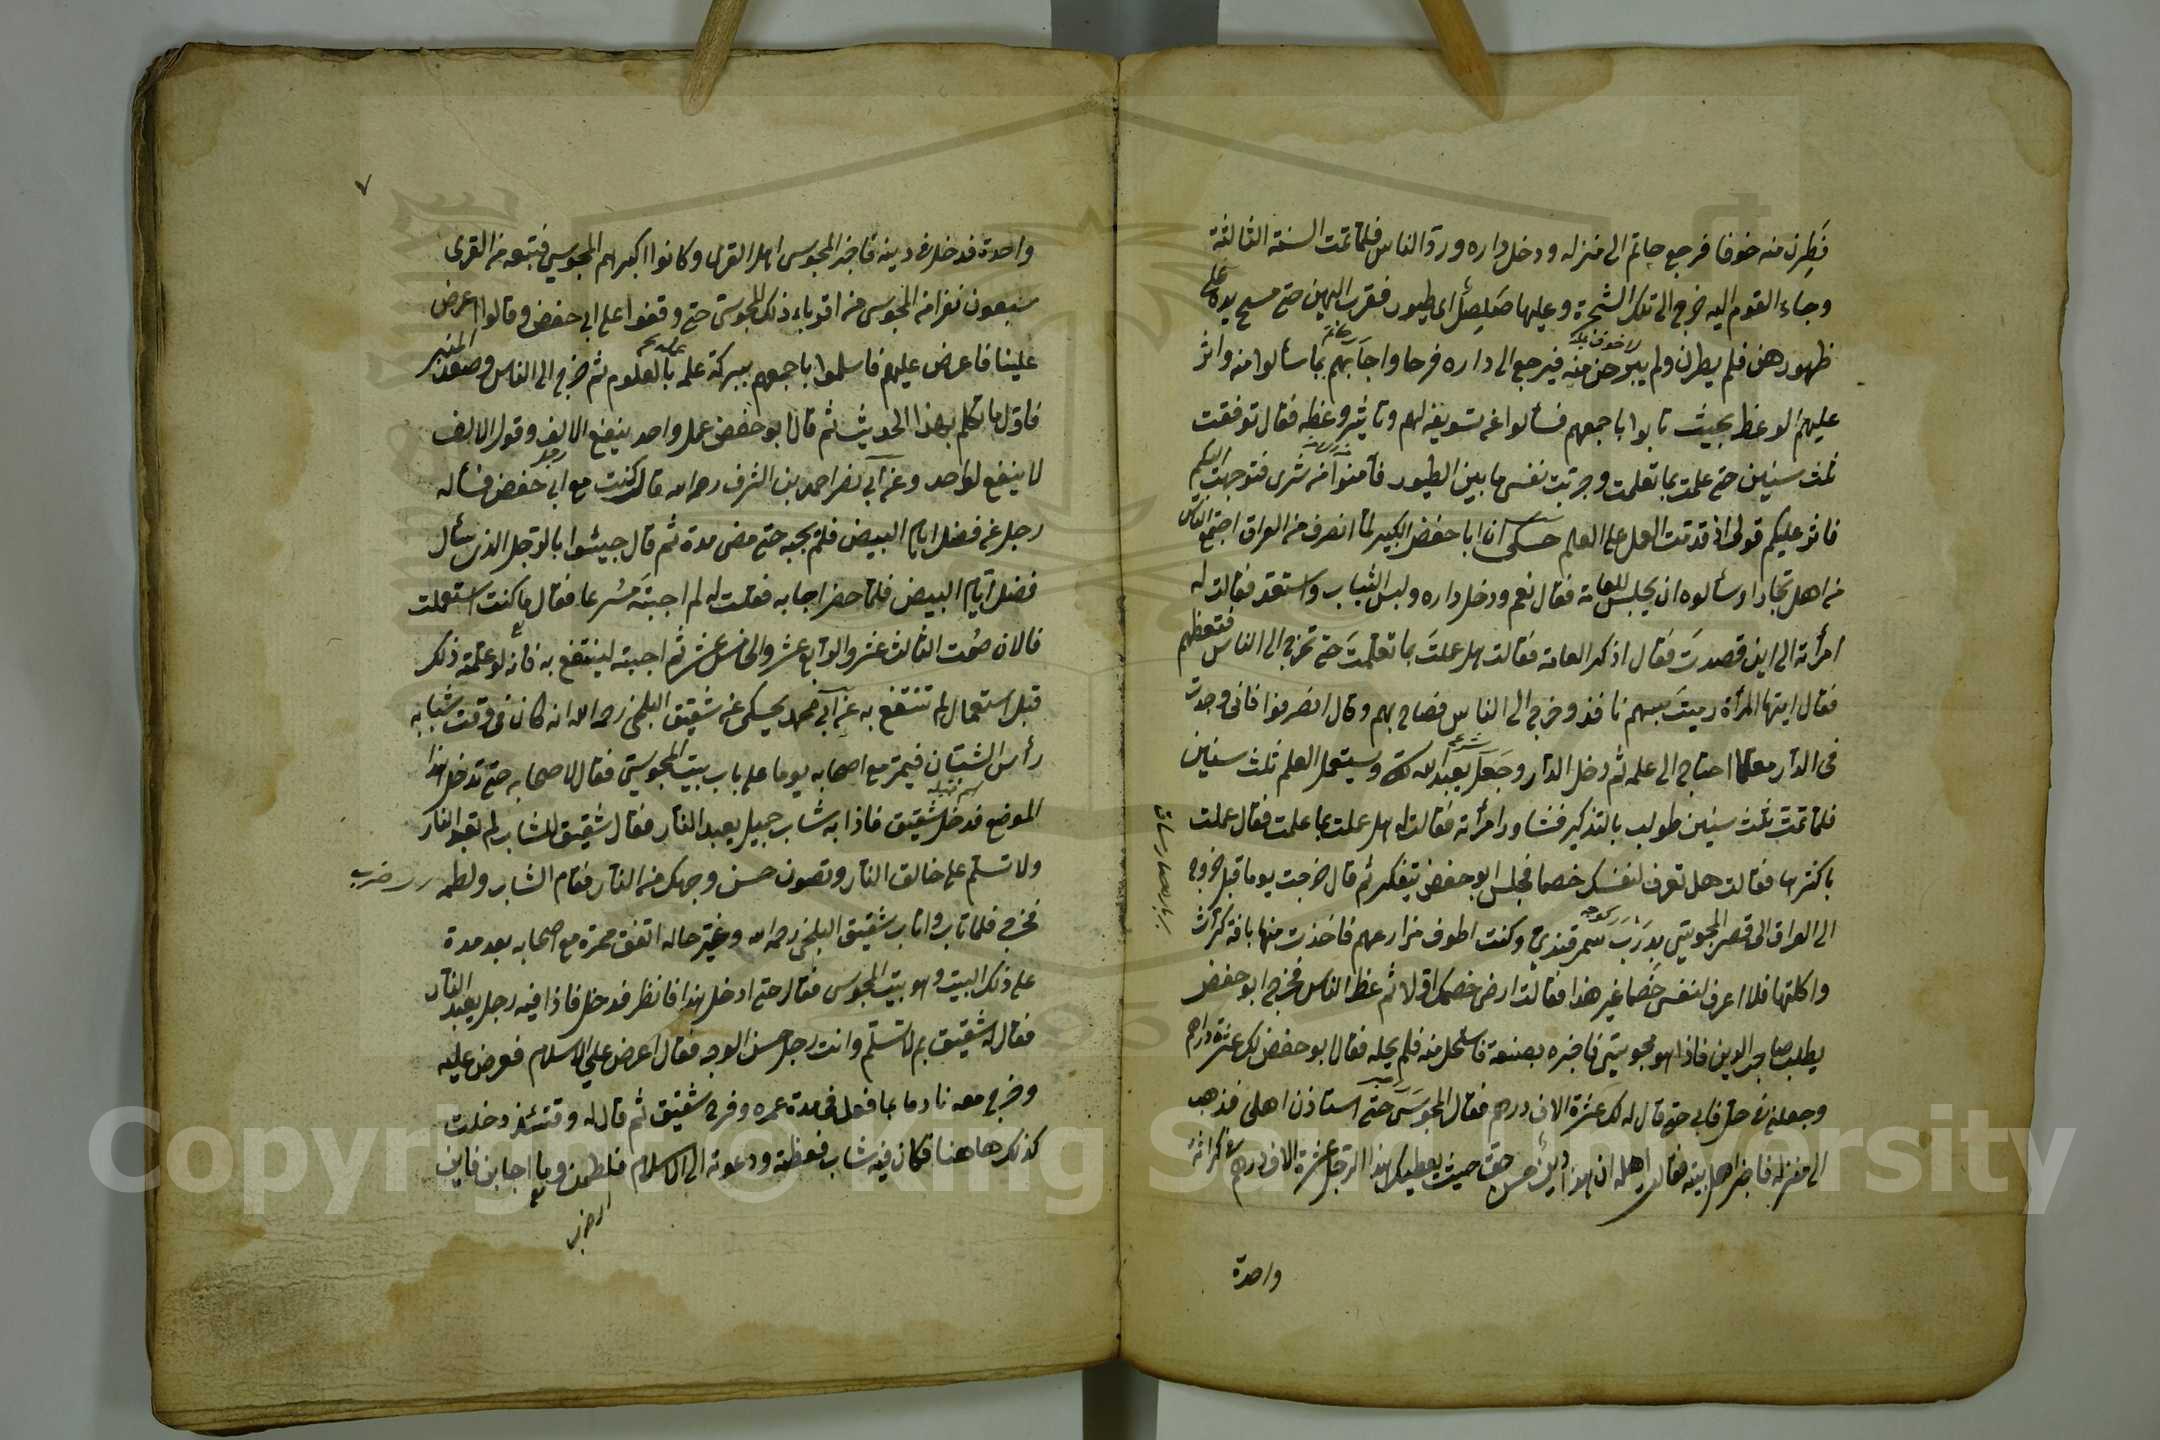 فطرن منه خوفا فرجع حاتم الى منزله ودخل داره ورد الناس فلما تمت السنة الثالثة
وجاء القوم اليه خرج الى تلك الشجرة وعليها صلصل اى طيور فقرب اليهن حتى مسح يده على
ظهورهن فلم يطرن ولم يبرحن منه فيرجع الى داره فرحا واجابهم بما سألوا منه واثر
عليهم الوعظ بحيث تابوا باجمعهم فسألوا عن تسويفه لهم وتأثير وعظه فقال توقفت
ثلث سنين حتى علمت بما تعلمت وجربت نفسى ما بين الطيور فأمنوا من شرى فتوجهت اليكم
فاثر عليكم قولى اذ قدمت العمل على العلم حكى ان ابا حفص الكبير لما انصرف من العراق اجتمع الناس
من اهل بخارا وسألوه ان يجلس للعامة فقال نعم ودخل داره ولبس الثياب واستعد فقالت له
امرأته الى اين قصدت فقال اذكر العامة فقالت هل عملت بما تعلمت حتى تخرج الى الناس فتعظهم
فقال ايتها المرأة رميت بسهم نافذ وخرج الى الناس فصاح بهم وقال انصرفوا فانى وجدت
فى الدار معلما احتاج الى علمه ثم دخل الدار وجعل يعبد الله ويستعمل العلم ثلث سنين
فلما تمت ثلث سنين طولب بالتذكير فشاور امرأته فقالت له هل عملت بما علمت فقال عملت
باكثرها فقالت هل تعرف لنفسك خصما فجلس ابو حفص يتفكر ثم قال خرجت يوما قبل خروجى
الى العراق الى قصر المجوسى بدرب سمرقندى وكنت اطوف مزارعهم فاخذت منها باقة كراث
واكلتها فلا اعرف لنفسى خصما غير هذا فقالت ارض خصمك اولا ثم عظ الناس فخرج ابو حفص
يطلب صاحب الدين فاذا هو مجوسى فاخبره بصنعه فاستحل منه فلم يحله فقال ابو حفص لك عشرة دراهم
وجعلنى فى حل فابى حتى قال له لك عشرة الاف درهم فقال المجوسى حتى استاذن اهلى فذهب
الى منزله فاخبر اهل بيته فقالت اهله ان هذا دين حسن حق حيث يعطيك هذا الرجل عشرة الاف درهم
واحدة
٧
واحدة فدخل فى دينه فاخبر المجوسى اهل القرى وكانوا اكبرهم المجوسى فتبعه من القرى
سبعون نفرا من المجوسى من اقرباء ذلك المجوسى حتى وقفوا على ابى حفص وقالوا اعرض
علينا فاعرض عليهم فاسلموا باجمعهم ببركة علمه بالعلوم ثم خرج الى الناس وصعد المنبر
فاول ما تكلم بهذا الحديث ثم قال ابو حفص عمل واحد ينفع الالف وقول الالف
لا ينفع لواحد وعن ابى نصر احمد بن الشرف رحمه الله قال كنت مع ابى حفص فسأله
رجل عن فضل ايام البيض فلم يجبه حتى مضى مدة ثم قال جيئوا بالرجل الذى سأل
فضل ايام البيض فلما حضر اجابه فقلت له لم اجبته مسرعا فقال ما كنت استعملت
فالان صمت الثالث عشر والرابع عشر والخامس عشر ثم اجبته لينتفع به فانه لو علمته ذلك
قبل استعمال لم تنتفع به عن ابى محمد يحكى عن شقيق البلخى رحمه الله انه كان فى وقت شبابه
رأس الشبان فيمر مع اصحابه يوما على باب بيت المجوسى فقال لاصحابه حتى تدخل هذا
الموضع فدخل شقيق فاذا به شاب جميل يعبد النار فقال شقيق للشاب لم تعبد النار
ولا تسلم على خالق النار وتصون حسن وجهك من النار فقام الشاب ولطمه
فخرج فلما تاب واناب شقيق البلخى رحمه الله وغير حاله اتفق ممره مع اصحابه بعد مدة
على ذلك البيت وهو بيت المجوسى فقال حتى ادخل هذا فانظر فدخل فاذا فيه رجل يعبد النار
فقال له شقيق بم لا تسلم وانت رجل حسن الوجه فقال اعرض على الاسلام فعرض عليه
وخرج معه نادما بما فعل فى مدة عمره وفرح شقيق ثم قال له وقتئذ دخلت
كذلك هاهنا فكان فيه شاب فعظته ودعوته الى الاسلام فلطمنى وما اجابنى فاين
Copyright © King Saud University